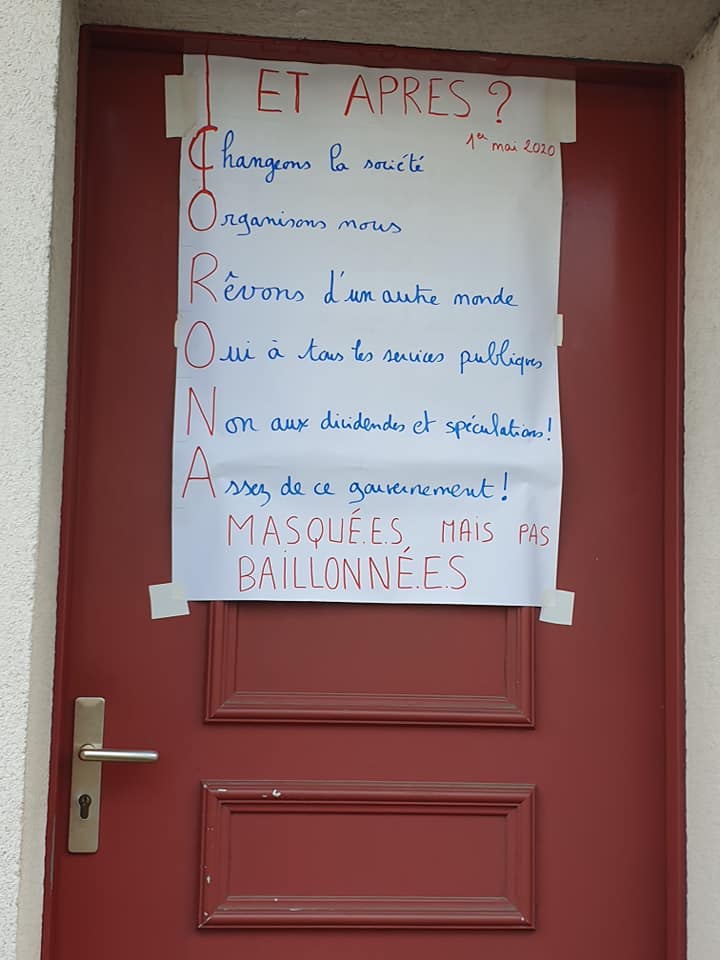 ET APRES ?
1er mai 2020
Changeons la société
Organisons nous
Rêvons d'un autre monde
Oui à tous les services publiques
Non aux dividendes et spéculations!
Assez de ce gouvernement!
MASQUÉ.E.S MAIS PAS
BAILLONNÉ.E.S